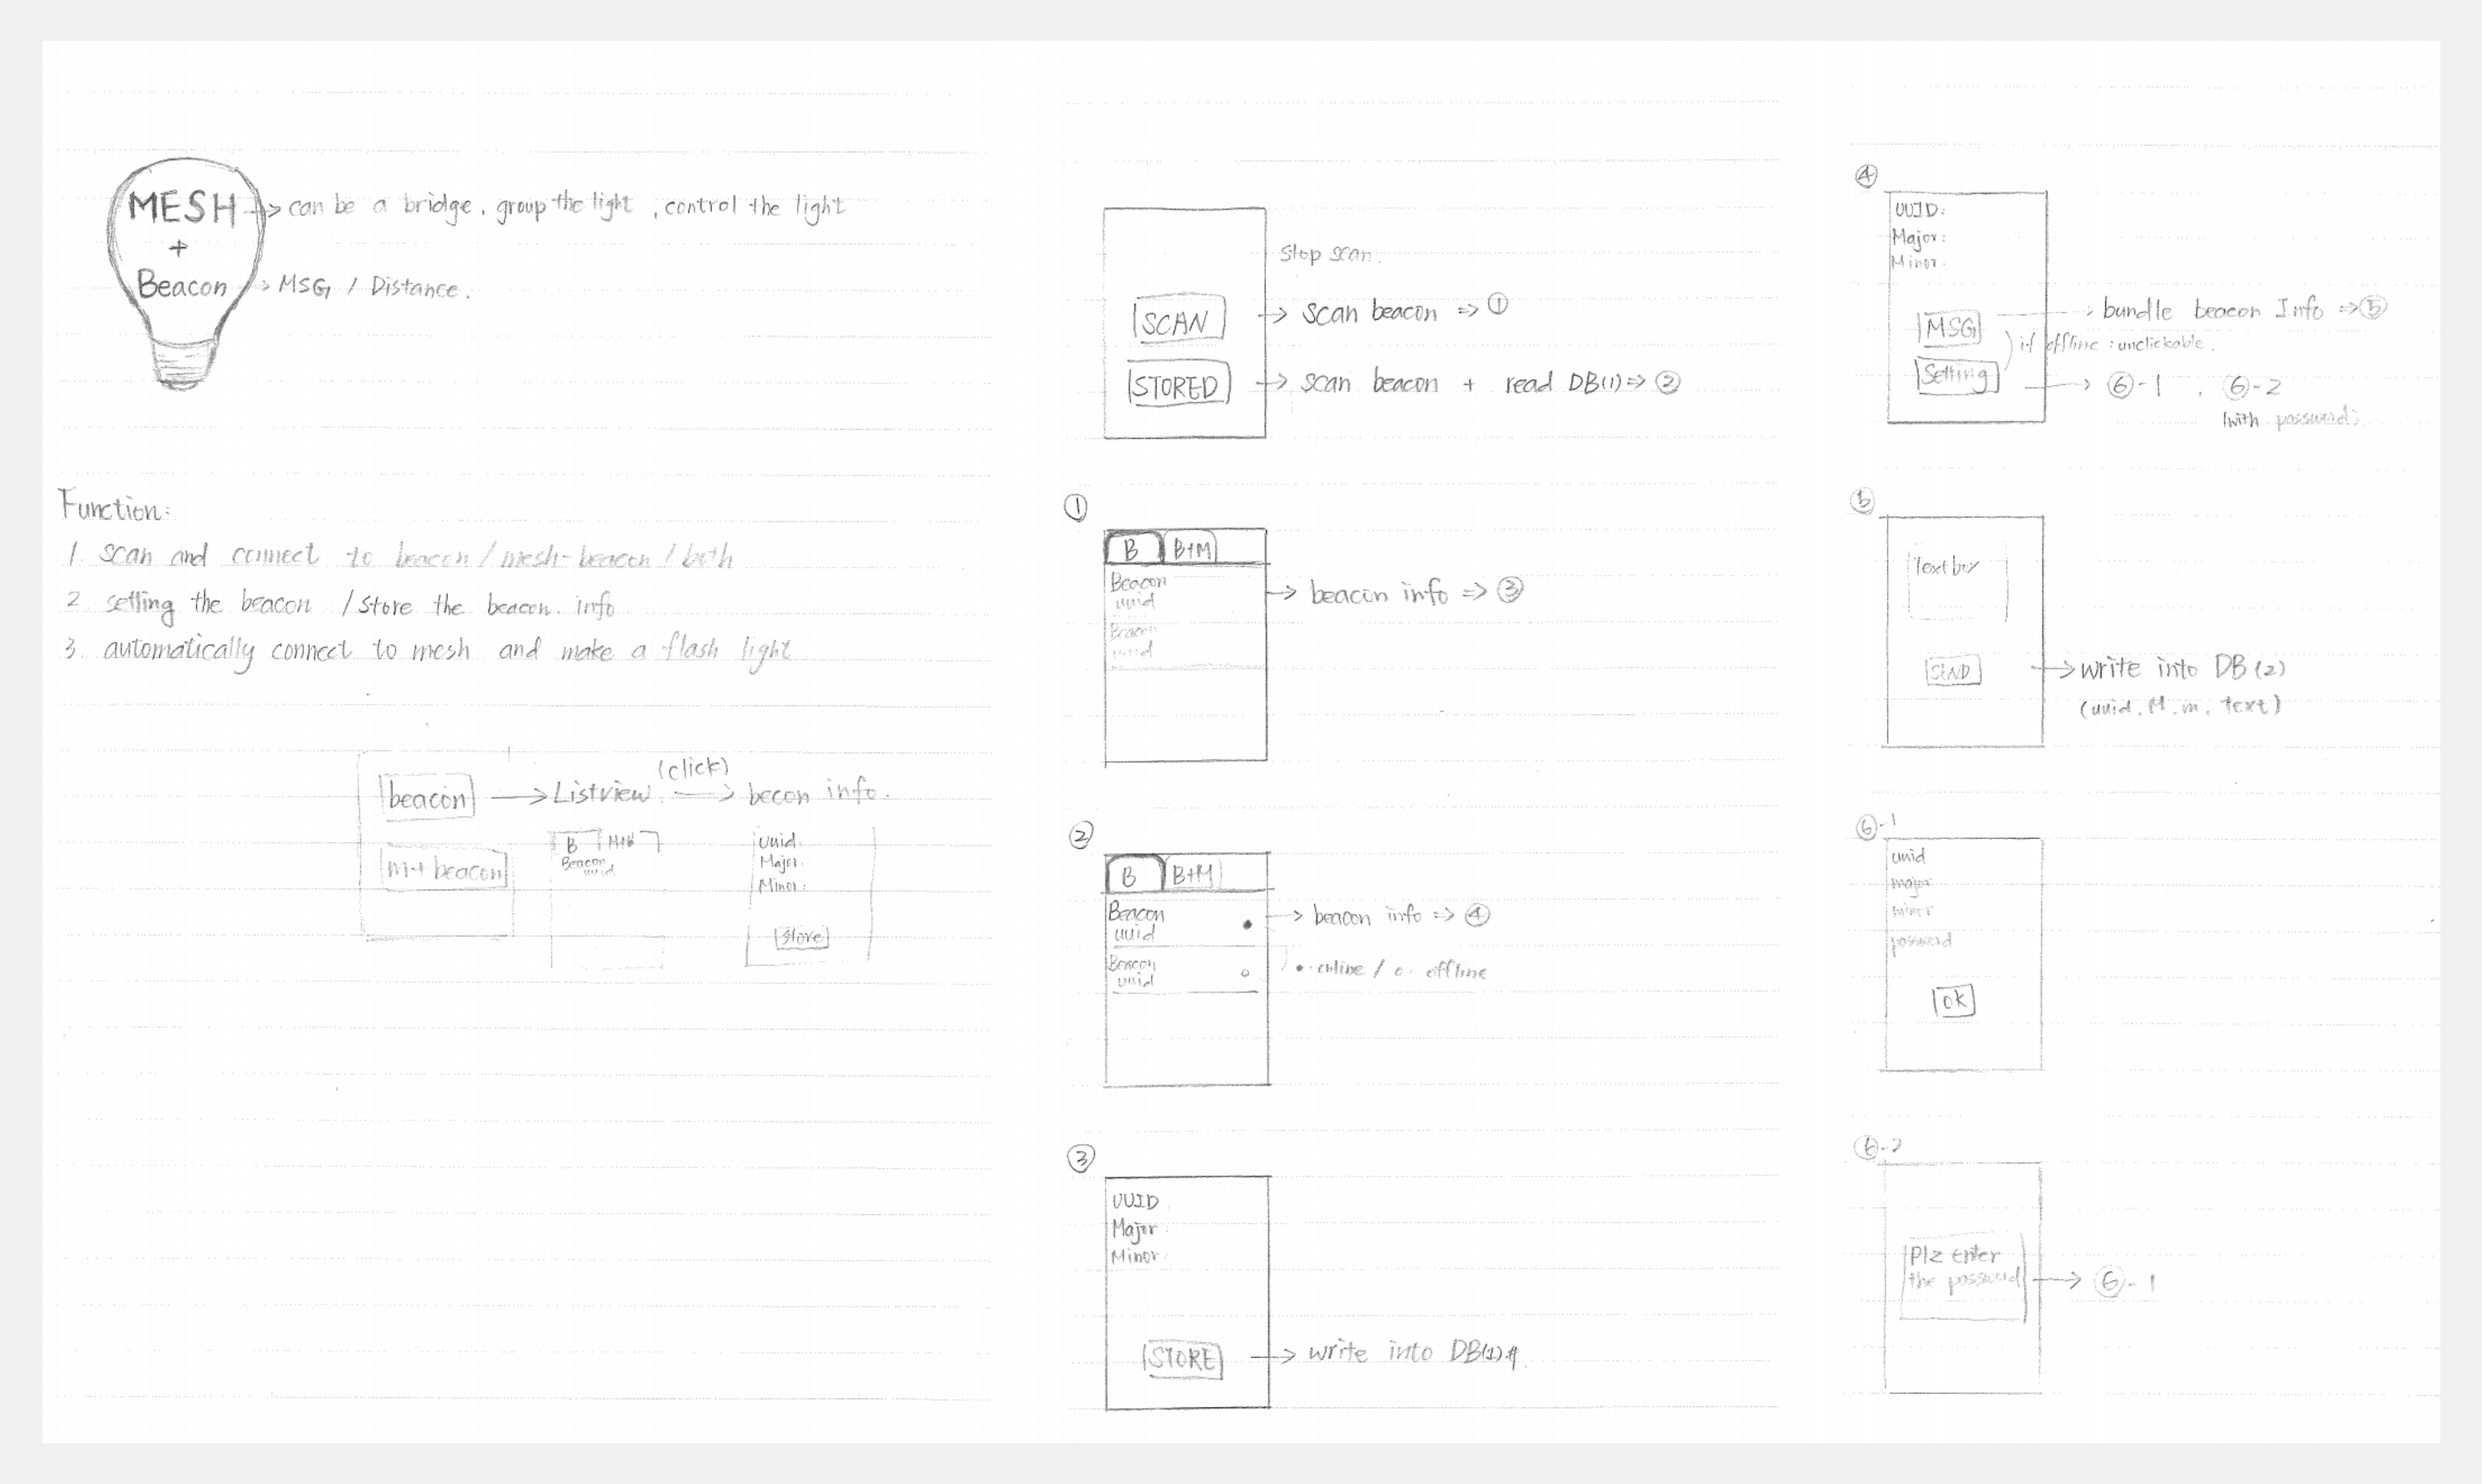 MESH → can be a bridge, group the light, control the light
+
Beacon → MSG / Distance.
Function:
1. scan and connect to beacon / mesh-beacon / both
2. setting the beacon / store the beacon info
3. automatically connect to mesh and make a flash light
beacon → Listview (click) → becon info.
m+beacon
B M+B
Beacon
uuid
uuid.
Major.
Minor:
store
stop scan.
SCAN → scan beacon ⇒ ①
STORED → scan beacon + read DB(1) ⇒ ②
①
B B+M
Beacon
uuid
→ beacon info ⇒ ③
Beacon
uuid
②
B B+M
Beacon
uuid
→ beacon info ⇒ ④
Beacon
uuid
• online / o. offline
③
UUID
Major
Minor
STORE → write into DB(1)
④
UUID:
Major:
Minor.
MSG → bundle beacon Info ⇒ ⑤
if offline : unclickable.
Setting → ⑥-1 , ⑥-2
(with password)
⑤
Text box
SEND → write into DB(2)
(uuid, M, m, text)
⑥-1
uuid
major
minor
password
OK
⑥-2
Plz enter
the password → ⑥-1